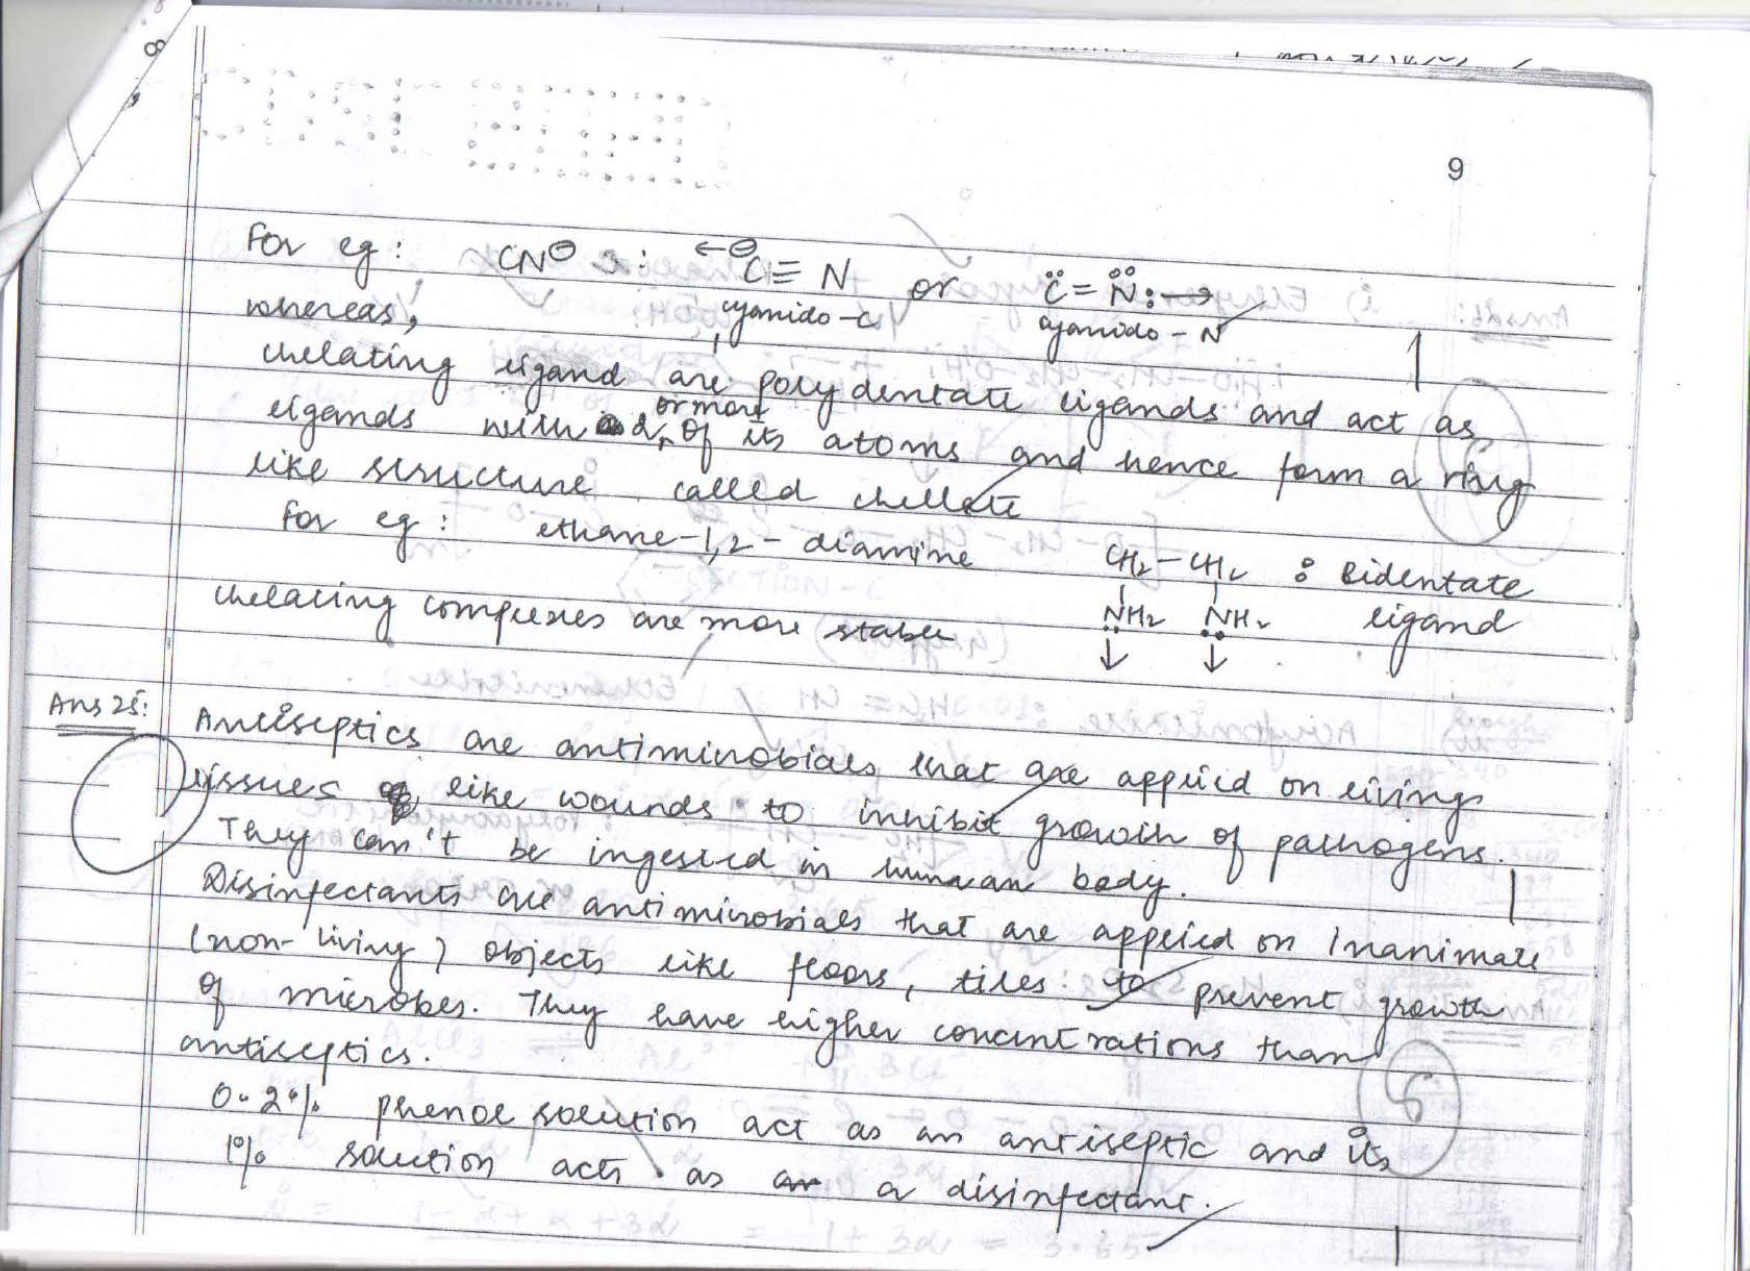 9
For eg: CN⊖ : ←⊖C≡N or C̈=N̈:→
whereas, cyanido-C cyanido-N
chelating ligand are polydentate ligands and act as
ligands with 2 or more of its atoms and hence form a ring
like structure called chellate
For eg: ethane-1,2-diamine CH2-CH2 : Bidentate
chelating complexes are more stable NH2 NH2 ligand
Ans 25: Antiseptics are antimicrobials that are applied on living
tissues like wounds to inhibit growth of pathogens.
They can't be ingested in human body.
Disinfectants are antimicrobials that are applied on inanimate
(non-living) objects like floors, tiles: to prevent growth
of microbes. They have higher concentrations than
antiseptics.
0.2% phenol solution act as an antiseptic and its
1% solution acts as a disinfectant.